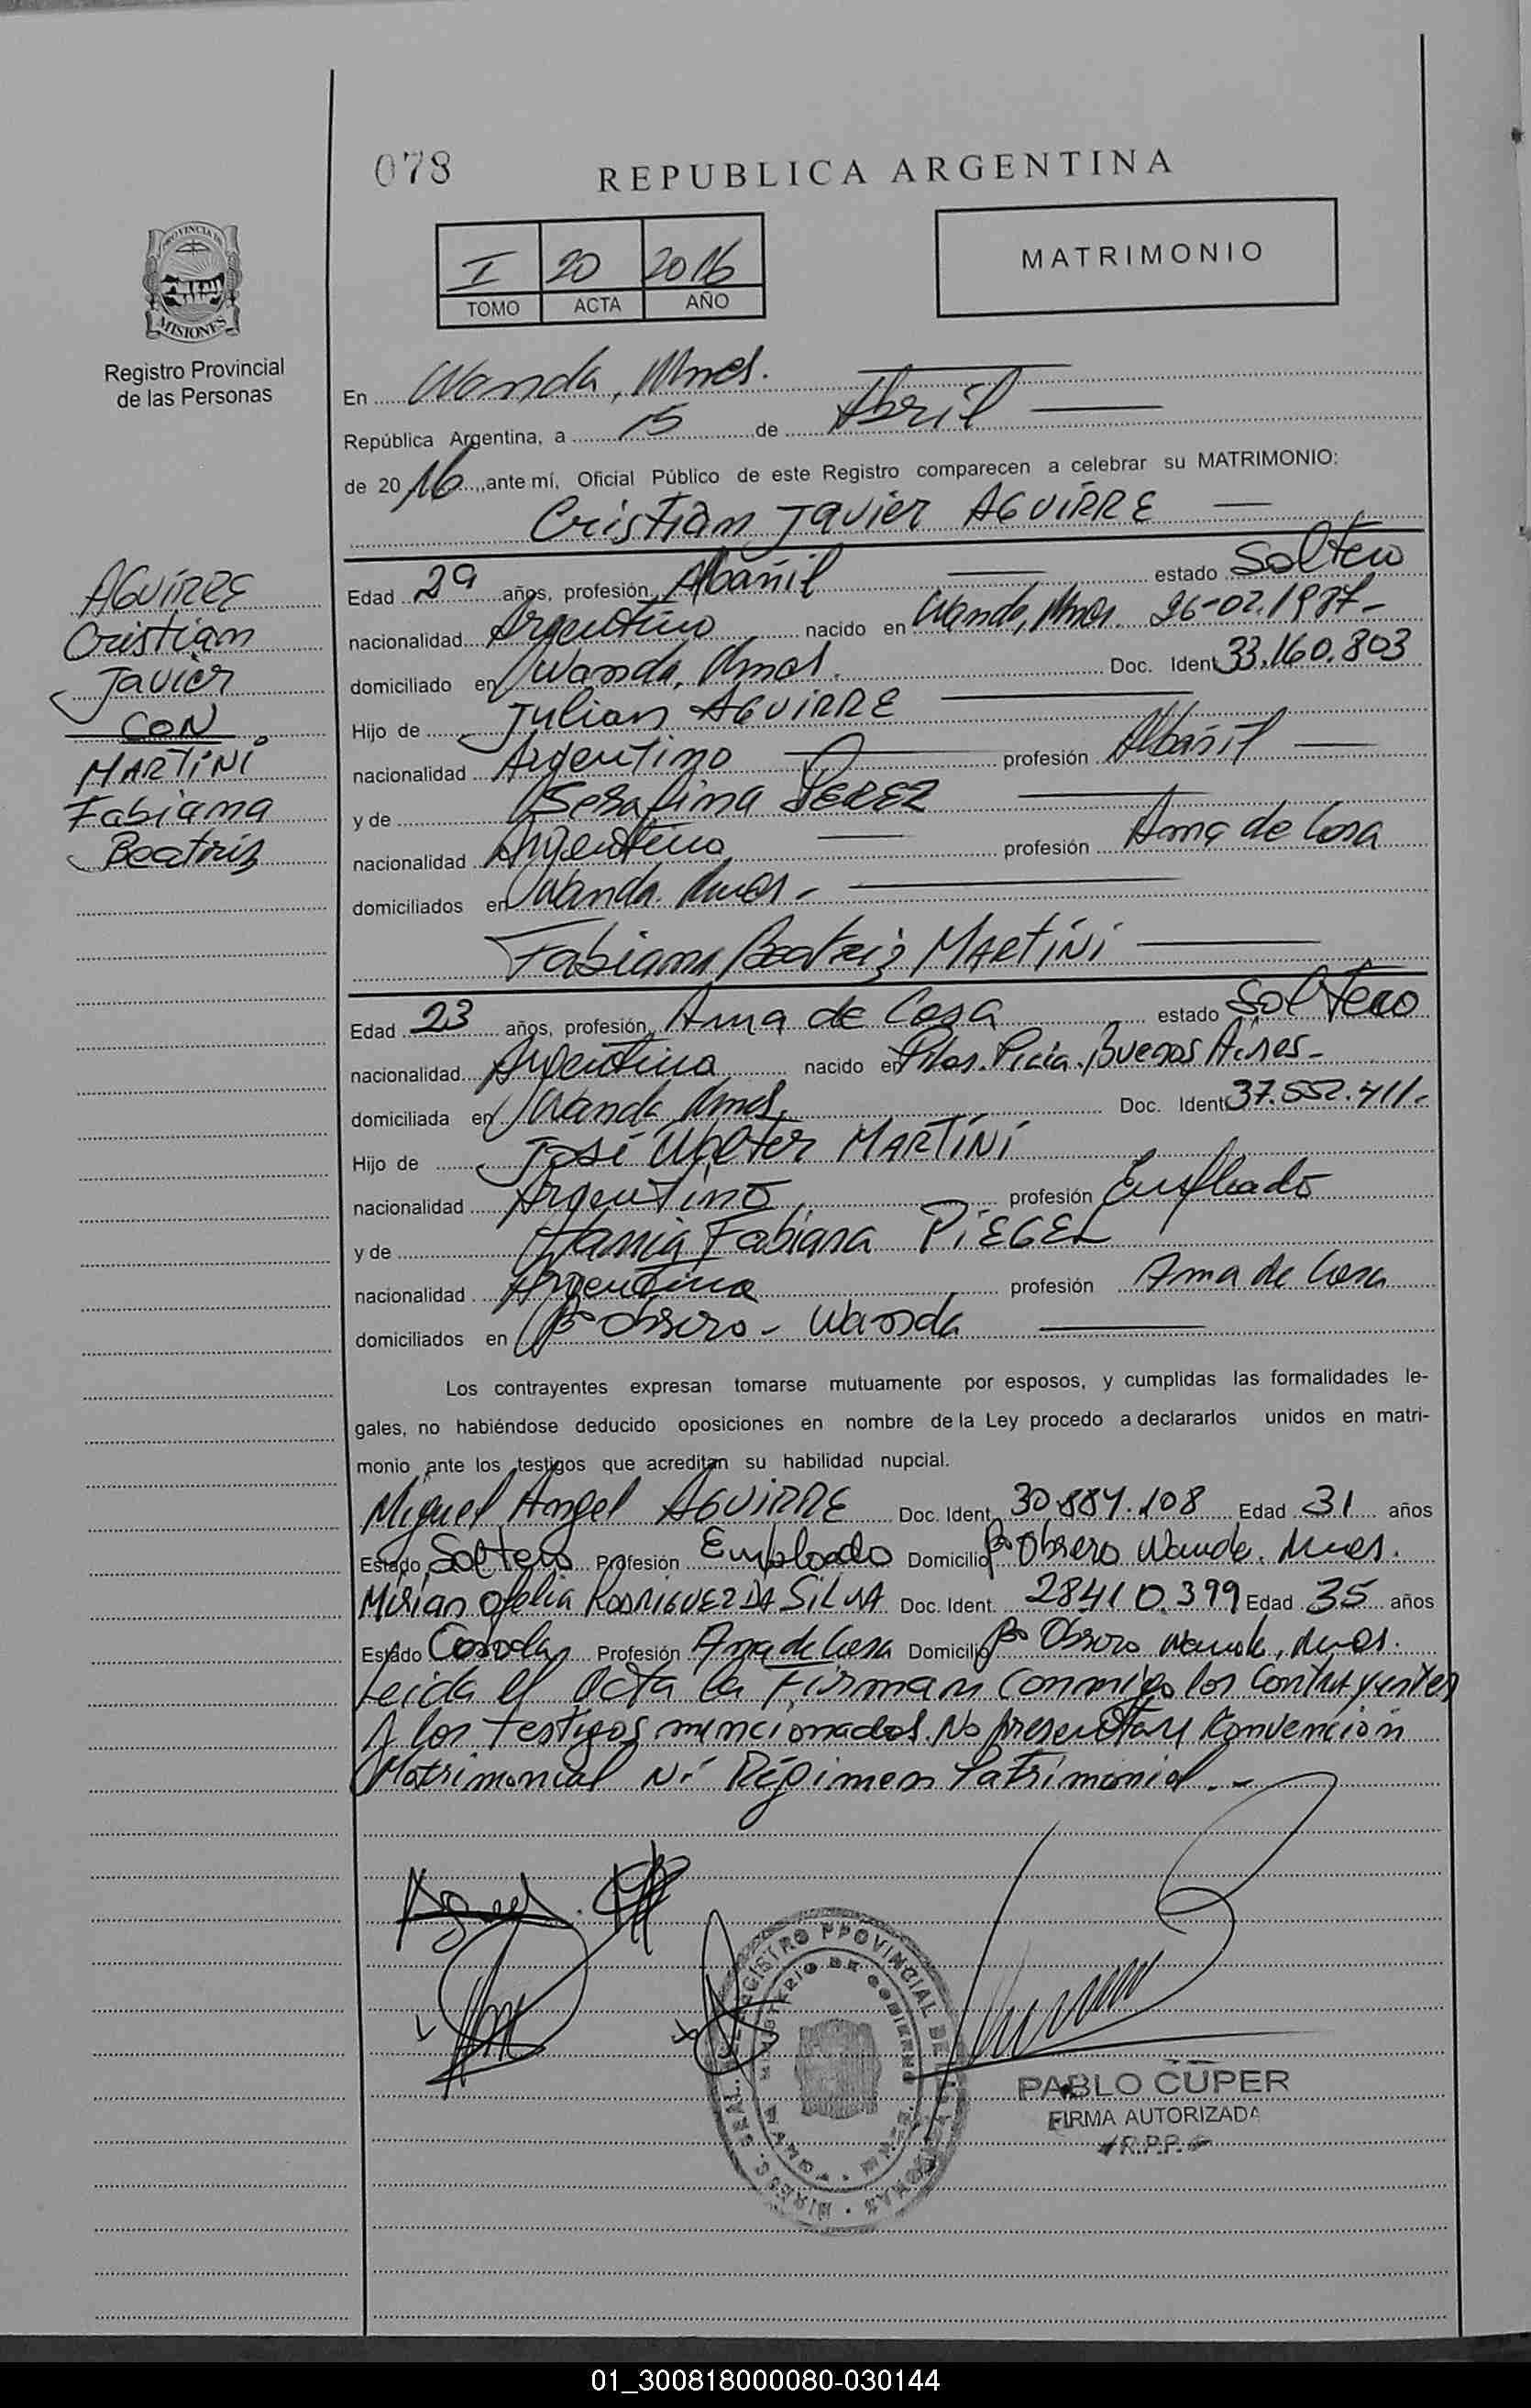 078
REPUBLICA ARGENTINA
PROVINCIA DE
MISIONES
Registro Provincial
de las Personas
I 20 2016
TOMO ACTA AÑO
MATRIMONIO
En Wanda, Mnes.
República Argentina, a 15 de Abril
de 2016, ante mí, Oficial Público de este Registro comparecen a celebrar su MATRIMONIO:
Cristian Javier AGUIRRE
AGUIRRE
Cristian
Javier
CON
MARTINI
Fabiana
Beatriz
Edad 29 años, profesión Albañil estado Soltero
nacionalidad Argentino nacido en Wanda, Mnes. 26-02.1987-
domiciliado en Wanda, Mnes. Doc. Ident 33.160.803
Hijo de Julian AGUIRRE
nacionalidad Argentino profesión Albañil
y de Serafina PEREZ
nacionalidad Argentina profesión Ama de Casa
domiciliados en Wanda. Mnes-
Fabiana Beatriz MARTINI
Edad 23 años, profesión Ama de Casa estado Soltero
nacionalidad Argentina nacido en Pcia. Buenos Aires-
domiciliada en Wanda Mnes. Doc. Ident 37.552.411-
Hijo de José Walter MARTINI
nacionalidad Argentino profesión Empleado
y de Fabiana PIEGEL
nacionalidad Argentina profesión Ama de Casa
domiciliados en Bº Obrero - Wanda
Los contrayentes expresan tomarse mutuamente por esposos, y cumplidas las formalidades le-
gales, no habiéndose deducido oposiciones en nombre de la Ley procedo a declararlos unidos en matri-
monio ante los testigos que acreditan su habilidad nupcial.
Miguel Angel AGUIRRE Doc. Ident. 30.884.108 Edad 31 años
Estado Soltero Profesión Empleado Domicilio Bº Obrero Wanda. Mnes.
Mirian Ofelia RODRIGUEZ DA SILVA Doc. Ident. 28410.399 Edad 35 años
Estado Casada Profesión Ama de Casa Domicilio Bº Obrero Wanda, Mnes.
Leida el Acta la Firman conmigo los Contrayentes
y los testigos mencionados. No presentan Convención
Matrimonial Ni Régimen Patrimonial.-
REGISTRO PROVINCIAL DE LAS PERSONAS
MINISTERIO DE GOBIERNO
WANDA
PABLO CUPER
FIRMA AUTORIZADA
R.P.P.
01_300818000080-030144